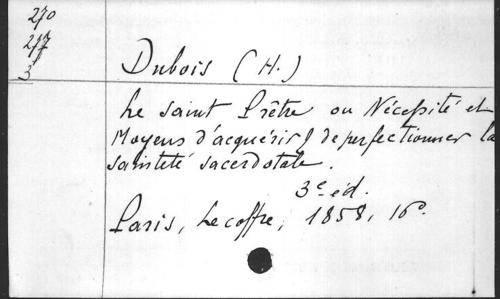 270
217
3
Dubois (H.)
Le saint Prêtre ou Nécessité et
Moyens d'acquérir & de perfectionner la
sainteté sacerdotale.
3e éd.
Paris, Lecoffre, 1858, 16°.